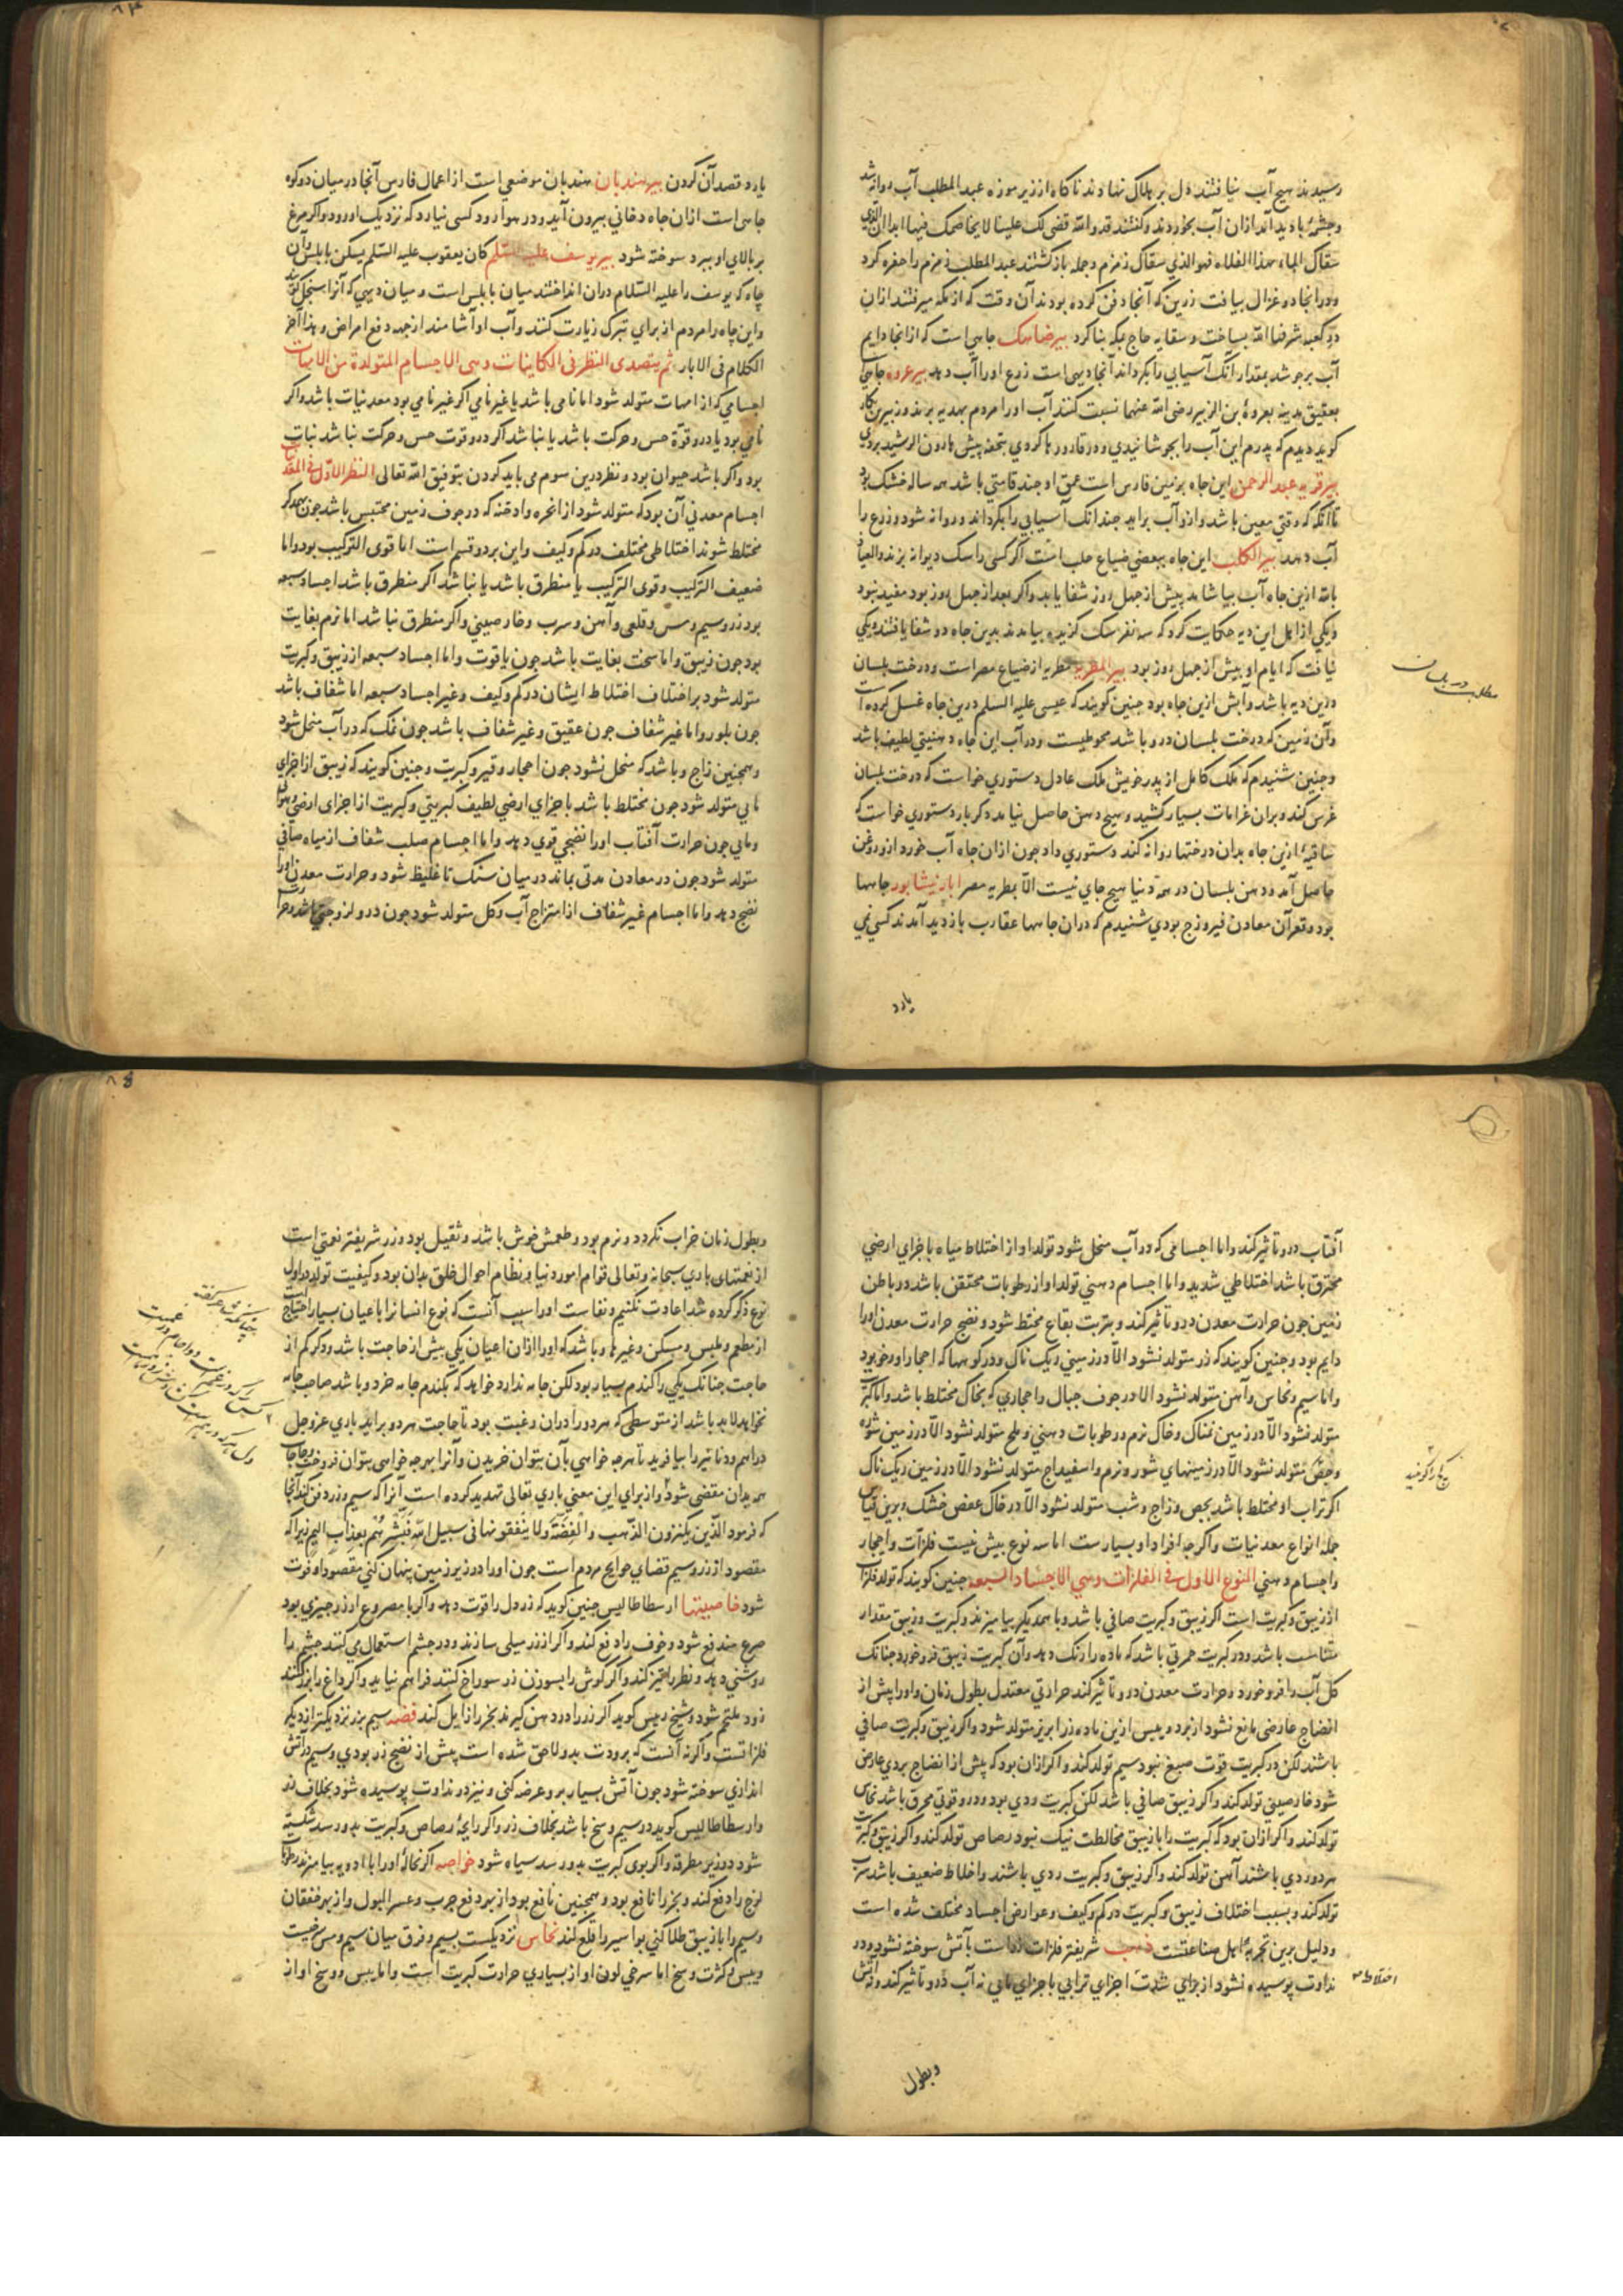 رسیدند هیچ آب نیافتند دل بر هلاک نهادند ناکاه از زیر موزه عبد المطلب آب روانه شد
وچشمهٔ بادید آمد ازان آب بخوردند وکفتند قد والله قضی لک علینا لا یخاصمک فیها ابدا ان الذی
سقاک الماء بهذا الفلاه فهو الذی سقاک زمزم وجمله بازکشتند عبد المطلب زمزم را حفره کرد
ودرانجا دو غزال بیافت زرین که آنجا دفن کرده بودند آن وقت که از مکه میرفتند ازان
در کعبه شرفها الله بساخت و سقایه حاج بمکه بنا کرد بیر ضاهک جاهی است که ازانجا دایم
آب برجوشد بمقدار آنک آسیابی را بکرداند آنجا دیهی است زرع اورا آب دهد بیر عروه جاهی
بعقیق مدینه بعروهٔ بن الزبیر رضی الله عنهما نسبت کنند آب اورا مردم بهدیه برند وزبیر بن بکار
کوید دیدم که پدرم این آب را بجوشانیدی ودر قارورها کردی بتحفه پیش هارون الرشید بردی
بیر قریه عبد الرحمن این جاه بزمین فارس است عمق او چند قامتی باشد همه ساله خشک بود
تا آنکه که وقتی معین باشد وازو آب براید چندانک آسیابی را بکرداند و روانه شود وزرع را
آب دهد بیر الکلب این جاه ببعضی ضیاع حلب است اکر کسی را سک دیوانه بزند والعیاذ
بالله ازین جاه آب بیاشامد پیش از چهل روز شفا یابد واکر بعد از چهل روز بود مفید نبود
ویکی از اهل این دیه حکایت کرد که سه نفر سک کزیده بیامدند بدین جاه دو شفا یافتند ویکی
نیافت که ایام او بیش از چهل روز بود بیر المطریه مطریه از ضیاع مصر است ودرخت بلسان
درین دیه باشد وآبش ازین جاه بود چنین کویند که عیسی علیه السلم درین جاه غسل کرده است
وآن زمین که درخت بلسان درو باشد محوطیست ودر آب این جاه دهنیتی لطیف باشد
وچنین شنیدم که ملک کامل از پدر خویش ملک عادل دستوری خواست که درخت بلسان
غرس کند وبران غرامات بسیار کشید وهیچ دهن حاصل نیامد دکر بار دستوری خواست که
ساقیهٔ ازین جاه بدان درختها روانه کند دستوری داد چون ازان جاه آب خورد ازو روغن
حاصل آمد ودهن بلسان در همه دنیا هیچ جای نیست الا بمطریه مصر ابار نیشابور جاهها
بود وقعر آن معادن فیروزج بودی شنیدم که دران جاهها عقارب بازدید آمدند کسی نمی
یارد
مطلب در بلسان
یارد قصد آن کردن بیر هندیان هندیان موضعی است از اعمال فارس آنجا در میان دو کوه
جاهی است ازان جاه دخانی بیرون آید ودر هوا رود کسی نیارد که نزدیک او رود واکر مرغ
بر بالای او پرد سوخته شود بیر یوسف علیه السلم کان یعقوب علیه السلم یسکن نابلس وآن
چاه که یوسف را علیه السلام دران انداختند میان نابلس است و میان دیهی که آنرا سنجل کویند
واین چاه را مردم از برای تبرک زیارت کنند وآب او آشامند از جهه دفع امراض وهذا آخر
الکلام فی الابار ثم یتصدی النظر فی الکاینات وهی الاجسام المتولدة من الامهات
اجسامی که از امهات متولد شود اما نامی باشد یا غیر نامی اکر غیر نامی بود معدنیات باشد واکر
نامی بود یا درو قوّة حس وحرکت باشد یا نباشد اکر درو قوت حس وحرکت نباشد نبات
بود واکر باشد حیوان بود ونظر درین سوم می باید کردن بتوفیق الله تعالی النظر الاول فی المعدنیات
اجسام معدنی آن بود که متولد شود از ابخره وادخنه که در جوف زمین محتبس باشد چون بهمدکر
مختلط شوند اختلاطی مختلف در کم وکیف واین بر دو قسم است اما قوی الترکیب بود واما
ضعیف الترکیب وقوی الترکیب یا منطرق باشد یا نباشد اکر منطرق باشد اجساد سبعه
بود زر وسیم ومس وقلعی وآهن وسرب وخارصینی واکر منطرق نباشد اما نرم بغایت
بود چون زیبق واما سخت بغایت باشد چون یاقوت واما اجساد سبعه از زیبق وکبریت
متولد شود بر اختلاف اختلاط ایشان در کم وکیف وغیر اجساد سبعه اما شفاف باشد
چون بلور واما غیر شفاف چون عقیق وغیر شفاف باشد چون نمک که در آب منحل شود
وهمچنین زاج ویا باشد که منحل نشود چون احجار وقیر وکبریت وچنین کویند که زیبق از اجزای
مایی متولد شود چون مختلط باشد با جزای ارضی لطیف کبریتی وکبریت از اجزای ارضی وهوایی
ومایی چون حرارت آفتاب اورا نضجی قوی دهد واما اجسام صلب شفاف از میاه صافی
متولد شود چون در معادن مدتی بماند در میان سنک تا غلیظ شود و حرارت معدن اورا
نضج دهد واما اجسام غیر شفاف از امتزاج آب وکل متولد شود چون درو لزوجتی باشد وحرارت
آفتاب درو تاثیر کند واما اجسامی که در آب منحل شود تولد او از اختلاط میاه با جزای ارضی
محترق باشد اختلاطی شدید واما اجسام دهنی تولد او از رطوبات محتقن باشد در باطن
زمین چون حرارت معدن درو تاثیر کند و بتربت بقاع مختلط شود ونضج حرارت معدن اورا
دایم بود وچنین کویند که زر متولد نشود الا در زمینی ریک ناک ودر کوهها که احجار او رخو بود
واما سیم ونحاس وآهن متولد نشود الا در جوف جبال واحجاری که بخاک مختلط باشد واما کبریت
متولد نشود الا در زمین نمناک وخاک نرم ورطوبات دهنی وملح متولد نشود الا در زمین شوره
وجص متولد نشود الا در زمینهای شور ونرم واسفیداج متولد نشود الا در زمین ریک ناک
اکر تراب او مختلط باشد بجص وزاج وشب متولد نشود الا در خاک عفص خشک وبرین قیاس
جمله انواع معدنیات واکرچه افراد او بسیارست اما سه نوع بیش نیست فلزات واحجار
واجسام دهنی النوع الاول فی الفلزات وهی الاجساد السبعه چنین کویند که تولد فلزات
از زیبق وکبریت است اکر زیبق وکبریت صافی باشد وبا همدیکر بیامیزند وکبریت وزیبق مقدار
متناسب باشد ودر کبریت حمرتی باشد که ماده را رنک دهد وآن کبریت زیبق فرو خورد چنانک
کل آب را فرو خورد وحرارت معدن درو تاثیر کند حرارتی معتدل بطول زمان واورا پیش از
انضاج عارضی مانع نشود از برد ویبس ازین ماده زر ابریز متولد شود واکر زیبق وکبریت صافی
باشند لکن در کبریت قوت صبغ نبود سیم تولد کند واکر ازان بود که پیش از انضاج بردی عارض
شود خارصینی تولد کند واکر زیبق صافی باشد لکن کبریت ردی بود ودرو قوتی محرق باشد نحاس
تولد کند واکر ازان بود که کبریت را با زیبق مخالطت نیک نبود رصاص تولد کند واکر زیبق وکبریت
هردو ردی باشند آهن تولد کند واکر زیبق وکبریت ردی باشند واخلاط ضعیف باشد سرب
تولد کند وبسبب اختلاف زیبق وکبریت در کم وکیف وعوارض اجساد مختلف شده است
ودلیل برین تجربهٔ اهل صناعتست ذهب شریفتر فلزات است بآتش سوخته نشود ودر
نداوت پوسیده نشود از برای شدت اجزای ترابی باجزای مایی نه آب درو تاثیر کند ونه آتش
وبطول
اختلاط
وبطول زمان خراب نکردد ونرم بود وطعمش خوش باشد وثقیل بود وزر شریفتر نعمتی است
از نعمتهای باری سبحانه وتعالی قوام امور دنیا ونظام احوال خلق بدان بود وکیفیت تولد در اول
نوع ذکر کرده شد اعادت نکنیم ونفاست اورا سبب آنست که نوع انسانرا باعیان بسیار احتیاج است
از مطعم وملبس ومسکن وغیرها وباشد که اورا ازان اعیان یکی بیش از حاجت باشد ودکر کم از
حاجت چنانک یکی را کندم بسیار بود لکن جامه ندارد خواهد که بکندم جامه خرد وباشد صاحب جامه
نخواهد لابد باشد از متوسطی که هردو را دران رغبت بود تا حاجت هردو براید باری عزوجل
دراهم ودنانیر را بیافرید تا هرچه خواهی بآن بتوان خریدن وآنرا بهرچه خواهی بتوان فروخت وحاجات
همه بدان مقضی شود واز برای این معنی باری تعالی تهدید کرده است آنرا که سیم وزر دفن کند آنجا
که فرمود الذین یکنزون الذهب والفضة ولا ینفقونها فی سبیل الله فبشرهم بعذاب الیم زیرا که
مقصود از زر وسیم قضای حوایج مردم است چون اورا در زیر زمین پنهان کنی مقصود او فوت
شود خاصیتها ارسطاطالیس چنین کوید که زر دل را قوت دهد واکر با مصروع از زر چیزی بود
صرع مندفع شود وخوف را دفع کند واکر از زر میلی سازند ودر چشم استعمال می کنند چشم را
روشنی دهد ونظر را تیز کند واکر کوش را بسوزن زر سوراخ کنند فراهم نیاید واکر داغ را بزر کنند
زود ملتحم شود وشیخ رییس کوید اکر زر را در دهن کیرند بخر را زایل کند فضه سیم بزر نزدیکتر از دیکر
فلزاتست واکر نه آنست که برودت بدو لاحق شده است پیش از نضج زر بودی وسیم در آتش
اندازی سوخته شود چون آتش بسیار برو عرضه کنی ونیز در نداوت پوسیده شود بخلاف زر
وارسطاطالیس کوید در سیم وسخ باشد بخلاف زر واکر رایحهٔ رصاص وکبریت بدو رسد شکسته
شود در زیر مطرقه واکر بوی کبریت بدو رسد سیاه شود خواصه اکر نخالهٔ اورا با ادویه بیامیزند رطوبات
لزج را دفع کند وبخر را نافع بود وهمچنین نافع بود از بهر دفع جرب وعسر البول واز بهر خفقان
وسیم را با زیبق طلا کنی بواسیر را قلع کند نحاس نزدیکست بسیم وفرق میان سیم ومس حمرتست
ویبس وکثرت وسخ اما سرخی لون او از بسیاری حرارت کبریت است واما یبس ووسخ او از